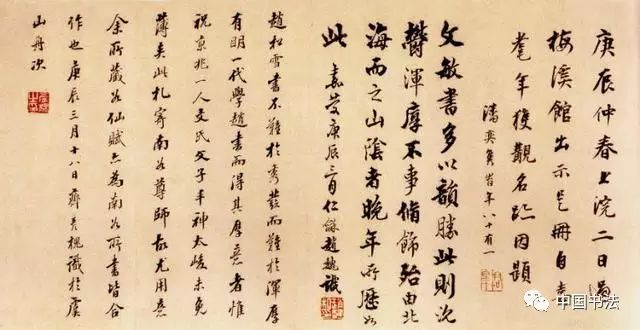 庚辰仲春上浣二日過
梅溪館出示是冊自喜
耄年獲觀名跡因題
潘奕雋峕年八十有一
文敏書多以韻勝此則沈
鬱渾厚不事脩飾殆由北
海而之山陰者晚年所歷如
此 嘉慶庚辰三月仁龢趙魏識
趙松雪書不難於秀發而難於渾厚
有明一代學趙書而得其厚意者惟
祝京兆一人文氏父子丰神太峻未免
薄矣此札寄南谷尊師故尤用意
余所藏仙賦亦為南谷所書皆合
作也庚辰三月十八日齊彥槐識於虞
山舟次
中国书法